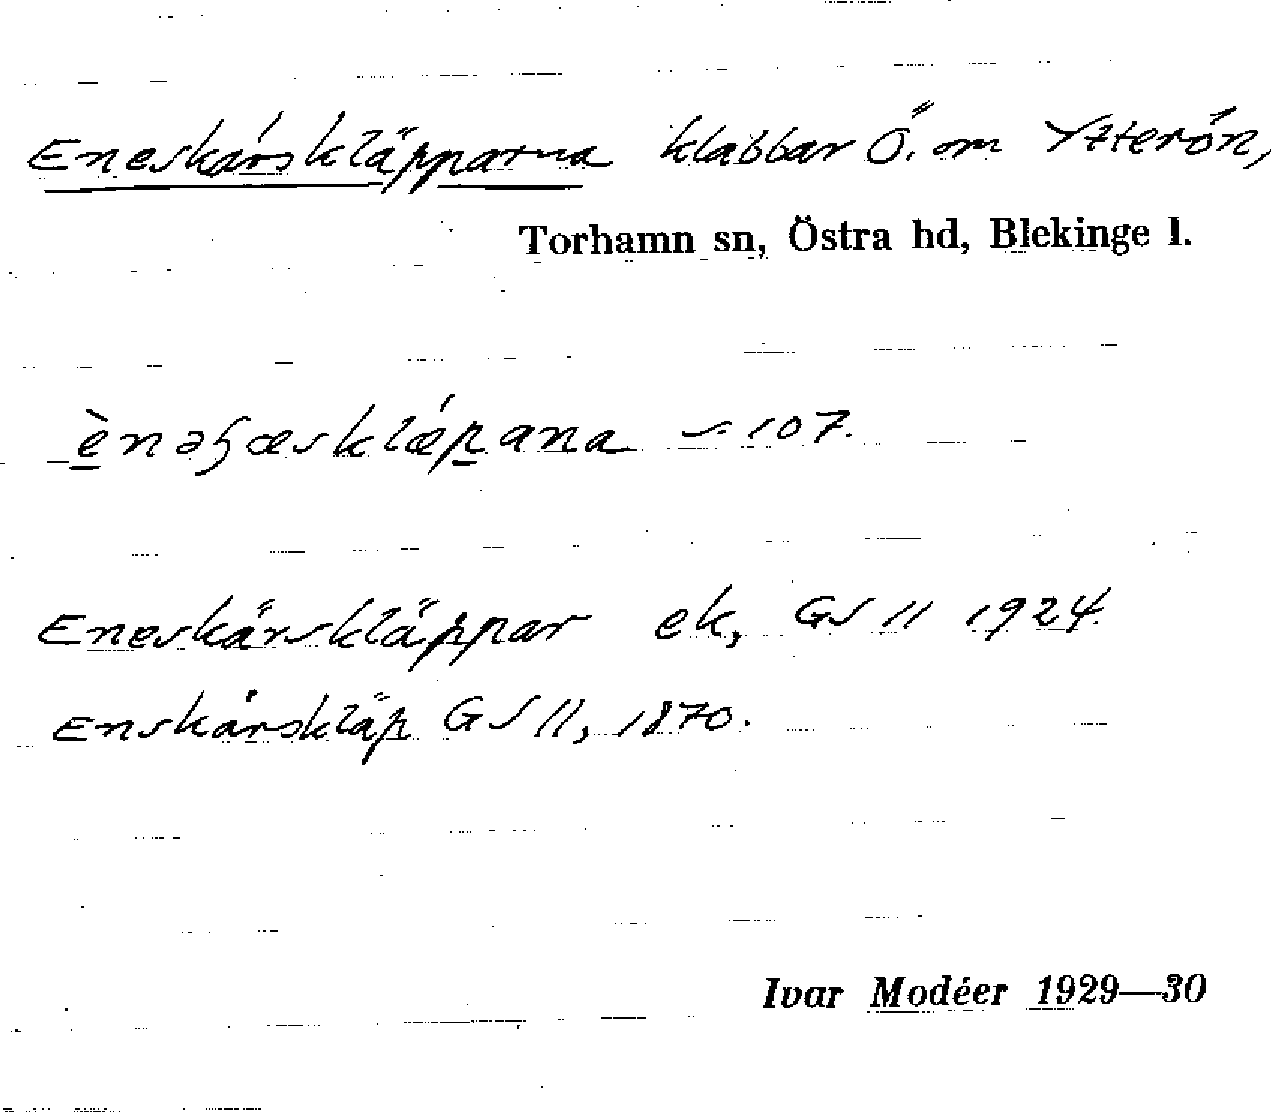 Eneskärskläpparna klabbar Ö. om Ytterön,
Torhamn sn, Östra hd, Blekinge l.
107.
Eneskärskläppar ek, GS II 1924.
Enskärskläp GS II, 1870.
Ivar Modéer 1929—30